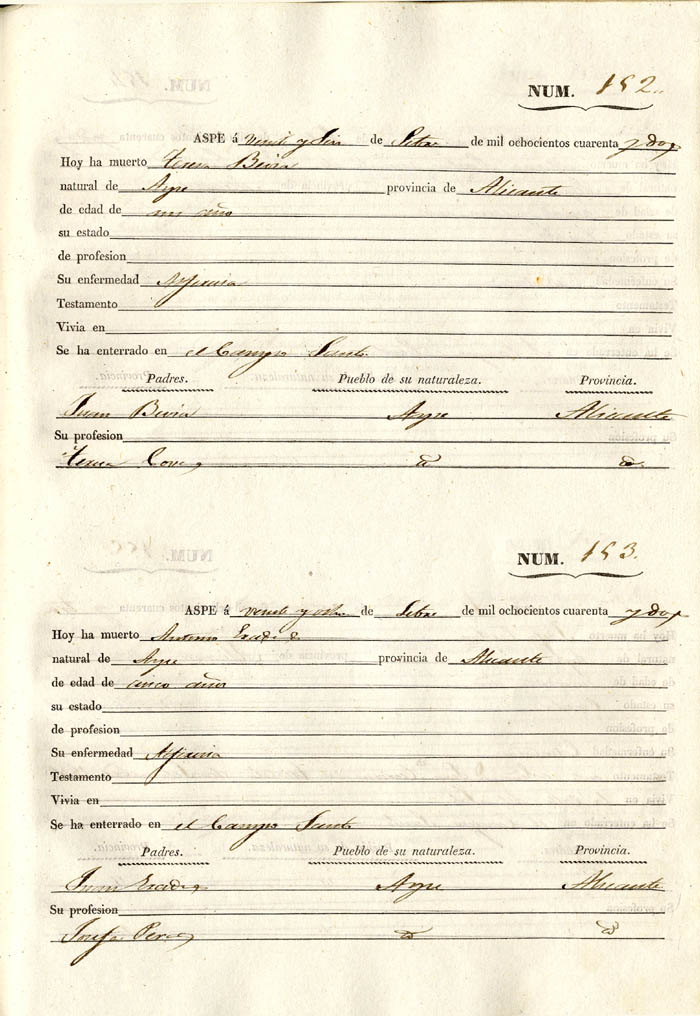 NUM. 152.
ASPE á veinte y seis de Setbre de mil ochocientos cuarenta y dos
Hoy ha muerto Teresa Bevia
natural de Aspe provincia de Alicante
de edad de un año
su estado
de profesion
Su enfermedad
Testamento
Vivia en
Se ha enterrado en el Campo Santo
Padres. Pueblo de su naturaleza. Provincia.
Juan Bevia Aspe Alicante
Su profesion
Teresa
NUM. 153.
ASPE á veinte y ocho de Setbre de mil ochocientos cuarenta y dos
Hoy ha muerto Antonio
natural de Aspe provincia de Alicante
de edad de cinco años
su estado
de profesion
Su enfermedad
Testamento
Vivia en
Se ha enterrado en el Campo Santo
Padres. Pueblo de su naturaleza. Provincia.
Juan Aspe Alicante
Su profesion
Josefa Perez